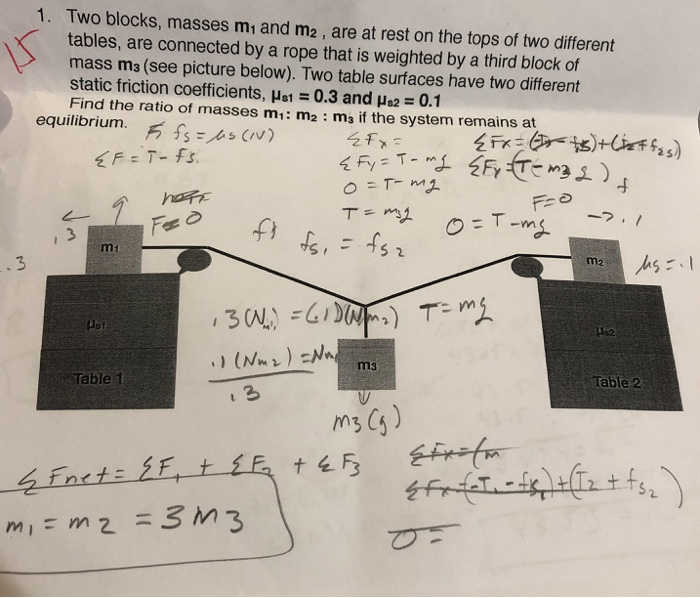 15
1. Two blocks, masses m₁ and m₂ , are at rest on the tops of two different
tables, are connected by a rope that is weighted by a third block of
mass m₃ (see picture below). Two table surfaces have two different
static friction coefficients, μs1 = 0.3 and μs2 = 0.1
Find the ratio of masses m₁: m₂ : m₃ if the system remains at
equilibrium.
fs = μs(N)
ΣF = T - fs
ΣFx =
ΣFy = T - mg
0 = T - mg
T = m₃g
ΣFx =
ΣFy = (T - m₃g)
F = 0
0 = T - mg
F = 0
.3
-> .1
fs₁ = fs₂
.3
m₁
m₂
μs = .1
μs1
μs2
.3(Nm₁) = (.1)(Nm₂)
T = mg
.1(Nm₂) = Nm₁
.3
m₃
Table 1
Table 2
m₃(g)
ΣFnet = ΣF₁ + ΣF₂ + ΣF₃
ΣFx = (m
ΣFx = (-T₁ - fs₁) + (T₂ + fs₂)
m₁ = m₂ = 3m₃
0 =